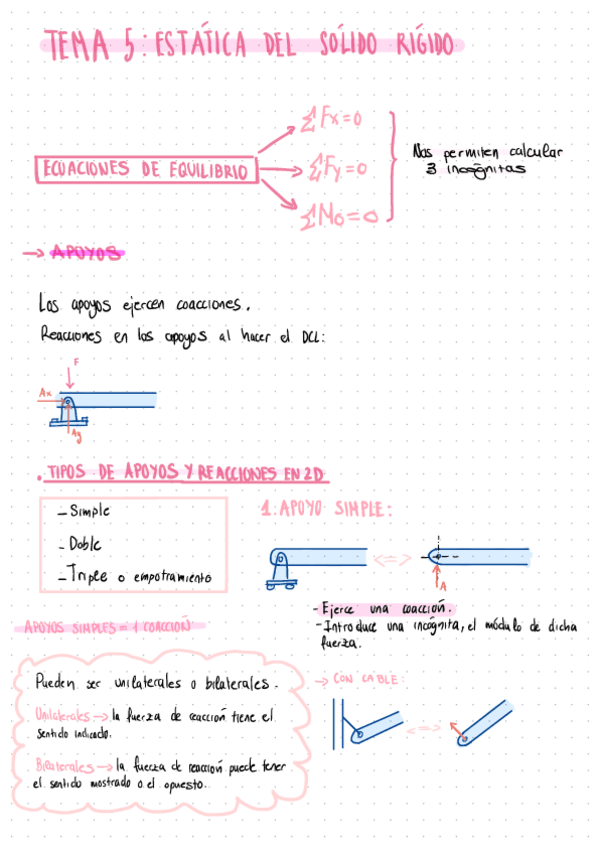 TEMA 5: ESTÁTICA DEL SÓLIDO RÍGIDO
ECUACIONES DE EQUILIBRIO
∑Fx=0
∑Fy=0
∑Mo=0
Nos permiten calcular
3 incógnitas
→ APOYOS
Los apoyos ejercen coacciones.
Reacciones en los apoyos al hacer el DCL:
F
Ax
Ay
. TIPOS DE APOYOS Y REACCIONES EN 2D
- Simple
- Doble
- Triple o empotramiento
1. APOYO SIMPLE:
A
- Ejerce una coacción.
- Introduce una incógnita, el módulo de dicha
fuerza.
APOYOS SIMPLES = 1 COACCIÓN
Pueden ser unilaterales o bilaterales.
Unilaterales → la fuerza de reacción tiene el
sentido indicado.
Bilaterales → la fuerza de reacción puede tener
el sentido mostrado o el opuesto.
→ CON CABLE: